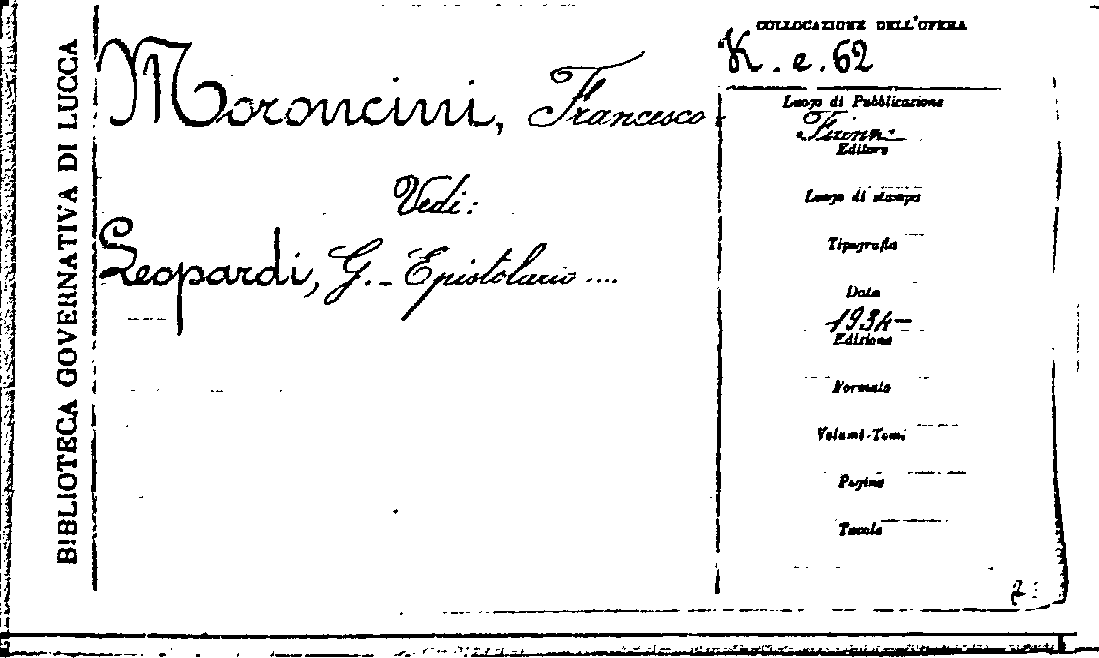 BIBLIOTECA GOVERNATIVA DI LUCCA
Moroncini, Francesco
Vedi:
Leopardi, G. - Epistolario ....
COLLOCAZIONE DELL'OPERA
K. e. 62
Luogo di Pubblicazione
Editore
Luogo di stampa
Tipografia
Data
1934-
Edizione
Formato
Volumi-Tomi
Pagine
Tavole